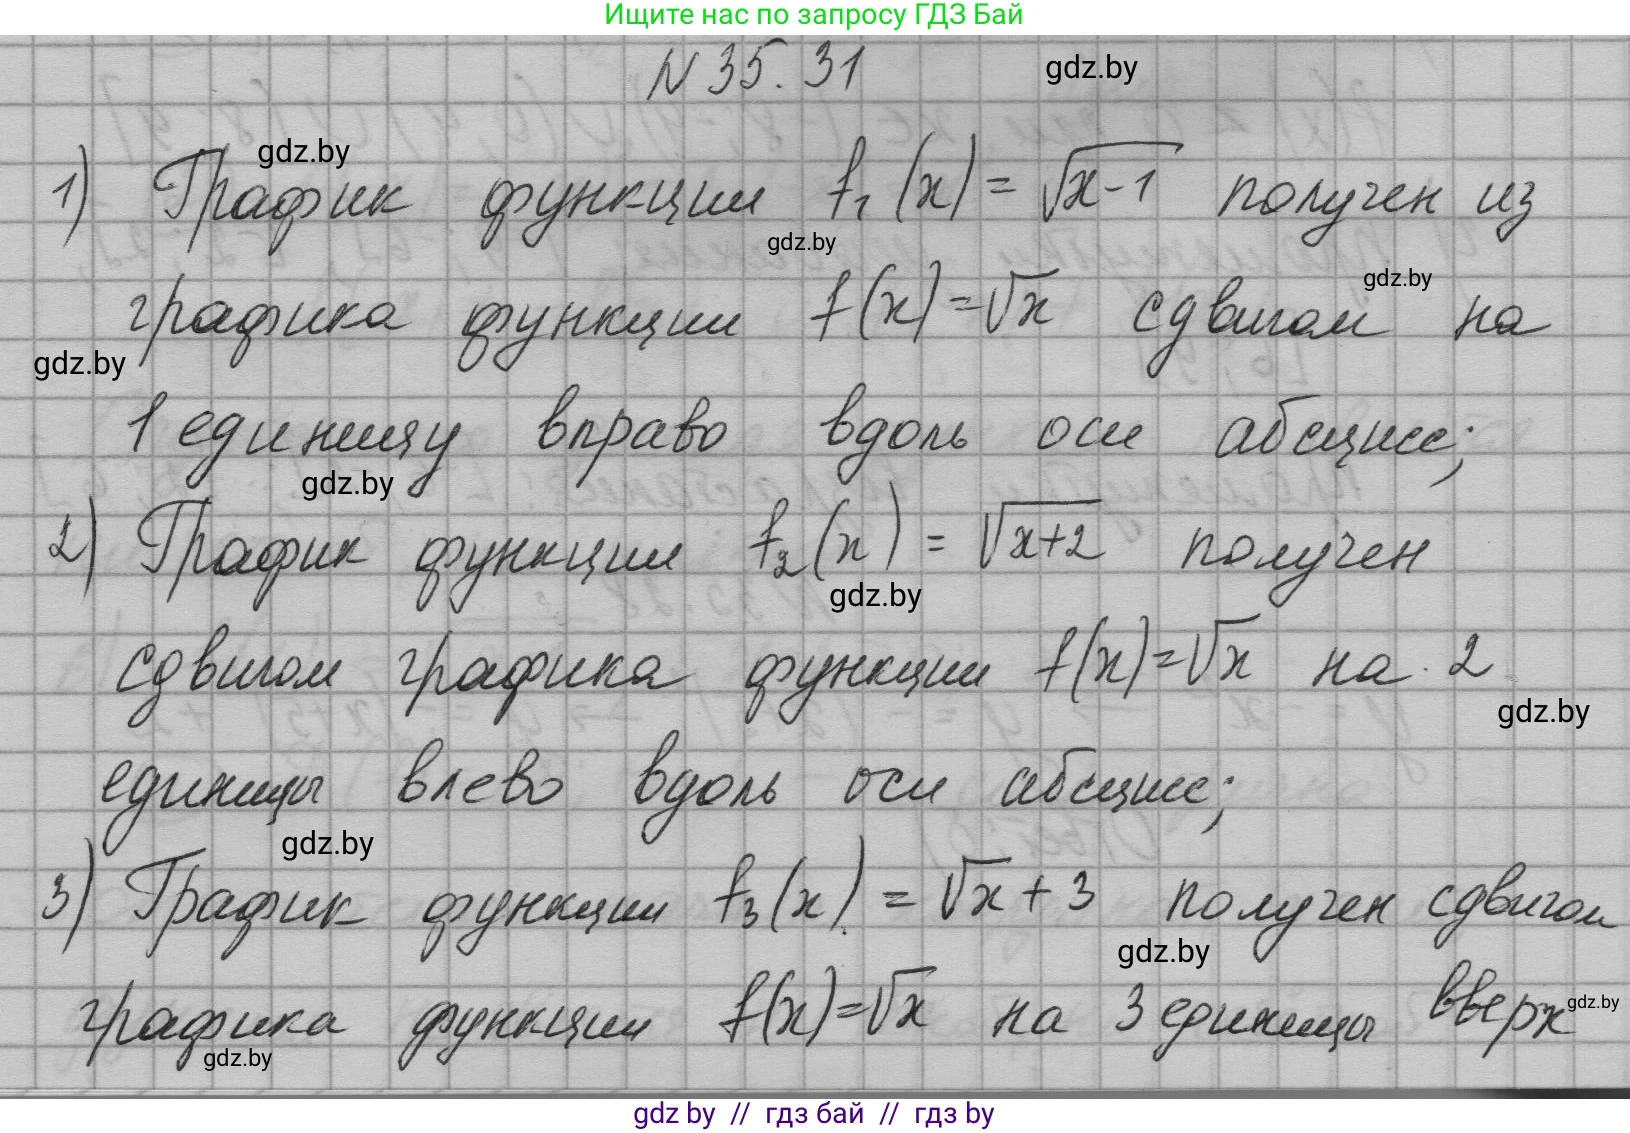 Ищите нас по запросу ГДЗ Бай
N 35.31
gdz.by
gdz.by
1) График функции f₁(x) = √(x-1) получен из
gdz.by
gdz.by
графика функции f(x) = √x сдвигом на
gdz.by
1 единицу вправо вдоль оси абсцисс;
gdz.by
2) График функции f₂(x) = √(x+2) получен
gdz.by
сдвигом графика функции f(x) = √x на 2
gdz.by
единицы влево вдоль оси абсцисс;
gdz.by
3) График функции f₃(x) = √x + 3 получен сдвигом
gdz.by
графика функции f(x) = √x на 3 единицы вверх
gdz.by
gdz.by
gdz by // гдз бай // гдз by